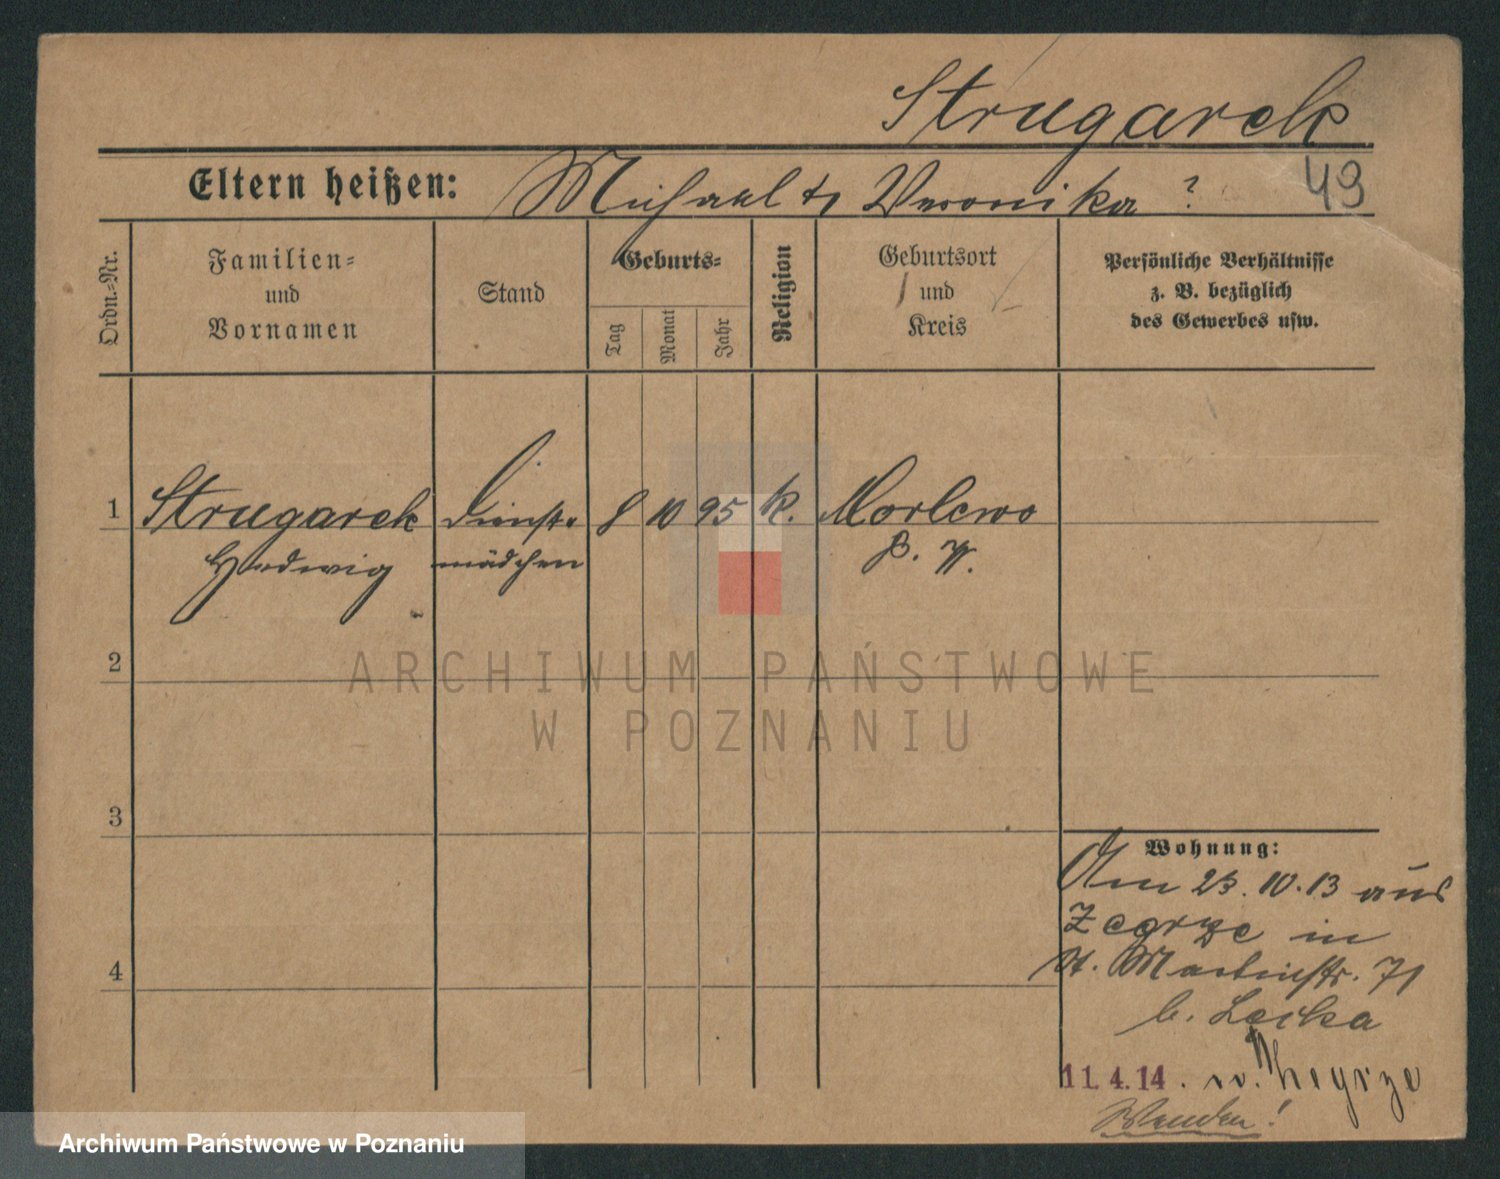 Strugarek
Eltern heißen: Michael & Veronika ?
49
Ordn.-Nr.
Familien-
und
Vornamen
Stand
Geburts-
Tag
Monat
Jahr
Religion
Geburtsort
und
Kreis
Persönliche Verhältnisse
z. B. bezüglich
des Gewerbes usw.
1 Strugarek Dienst- 8 10 95 k. Morlewo
Hedwig mädchen P. W.
2
ARCHIWUM PAŃSTWOWE
W POZNANIU
3
Wohnung:
Am 23.10.13 aus
Zegrze in
St. Martinstr. 71
b.
4
11.4.14. n. Zhegrze
Wenden!
Archiwum Państwowe w Poznaniu